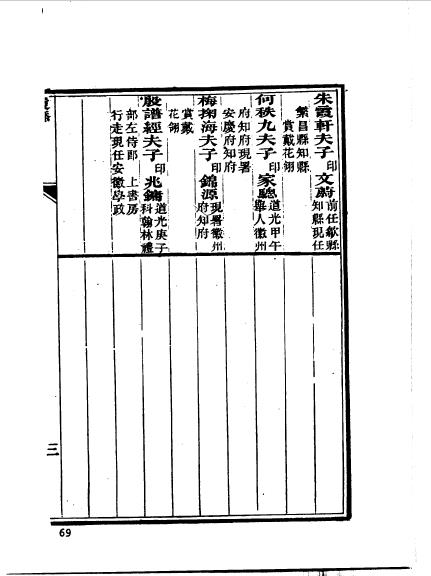 朱霞軒夫子印文蔚前任歙縣知縣現任
繁昌縣知縣
賞戴花翎
何秩九夫子印家驄道光甲午舉人徽州
府知府現署
安慶府知府
梅掬海夫子印錦源現署徽州府知府
賞戴
花翎
殷譜經夫子印兆鏞道光庚子科翰林禮
部左侍郎 上書房
行走現任安徽學政
三
69